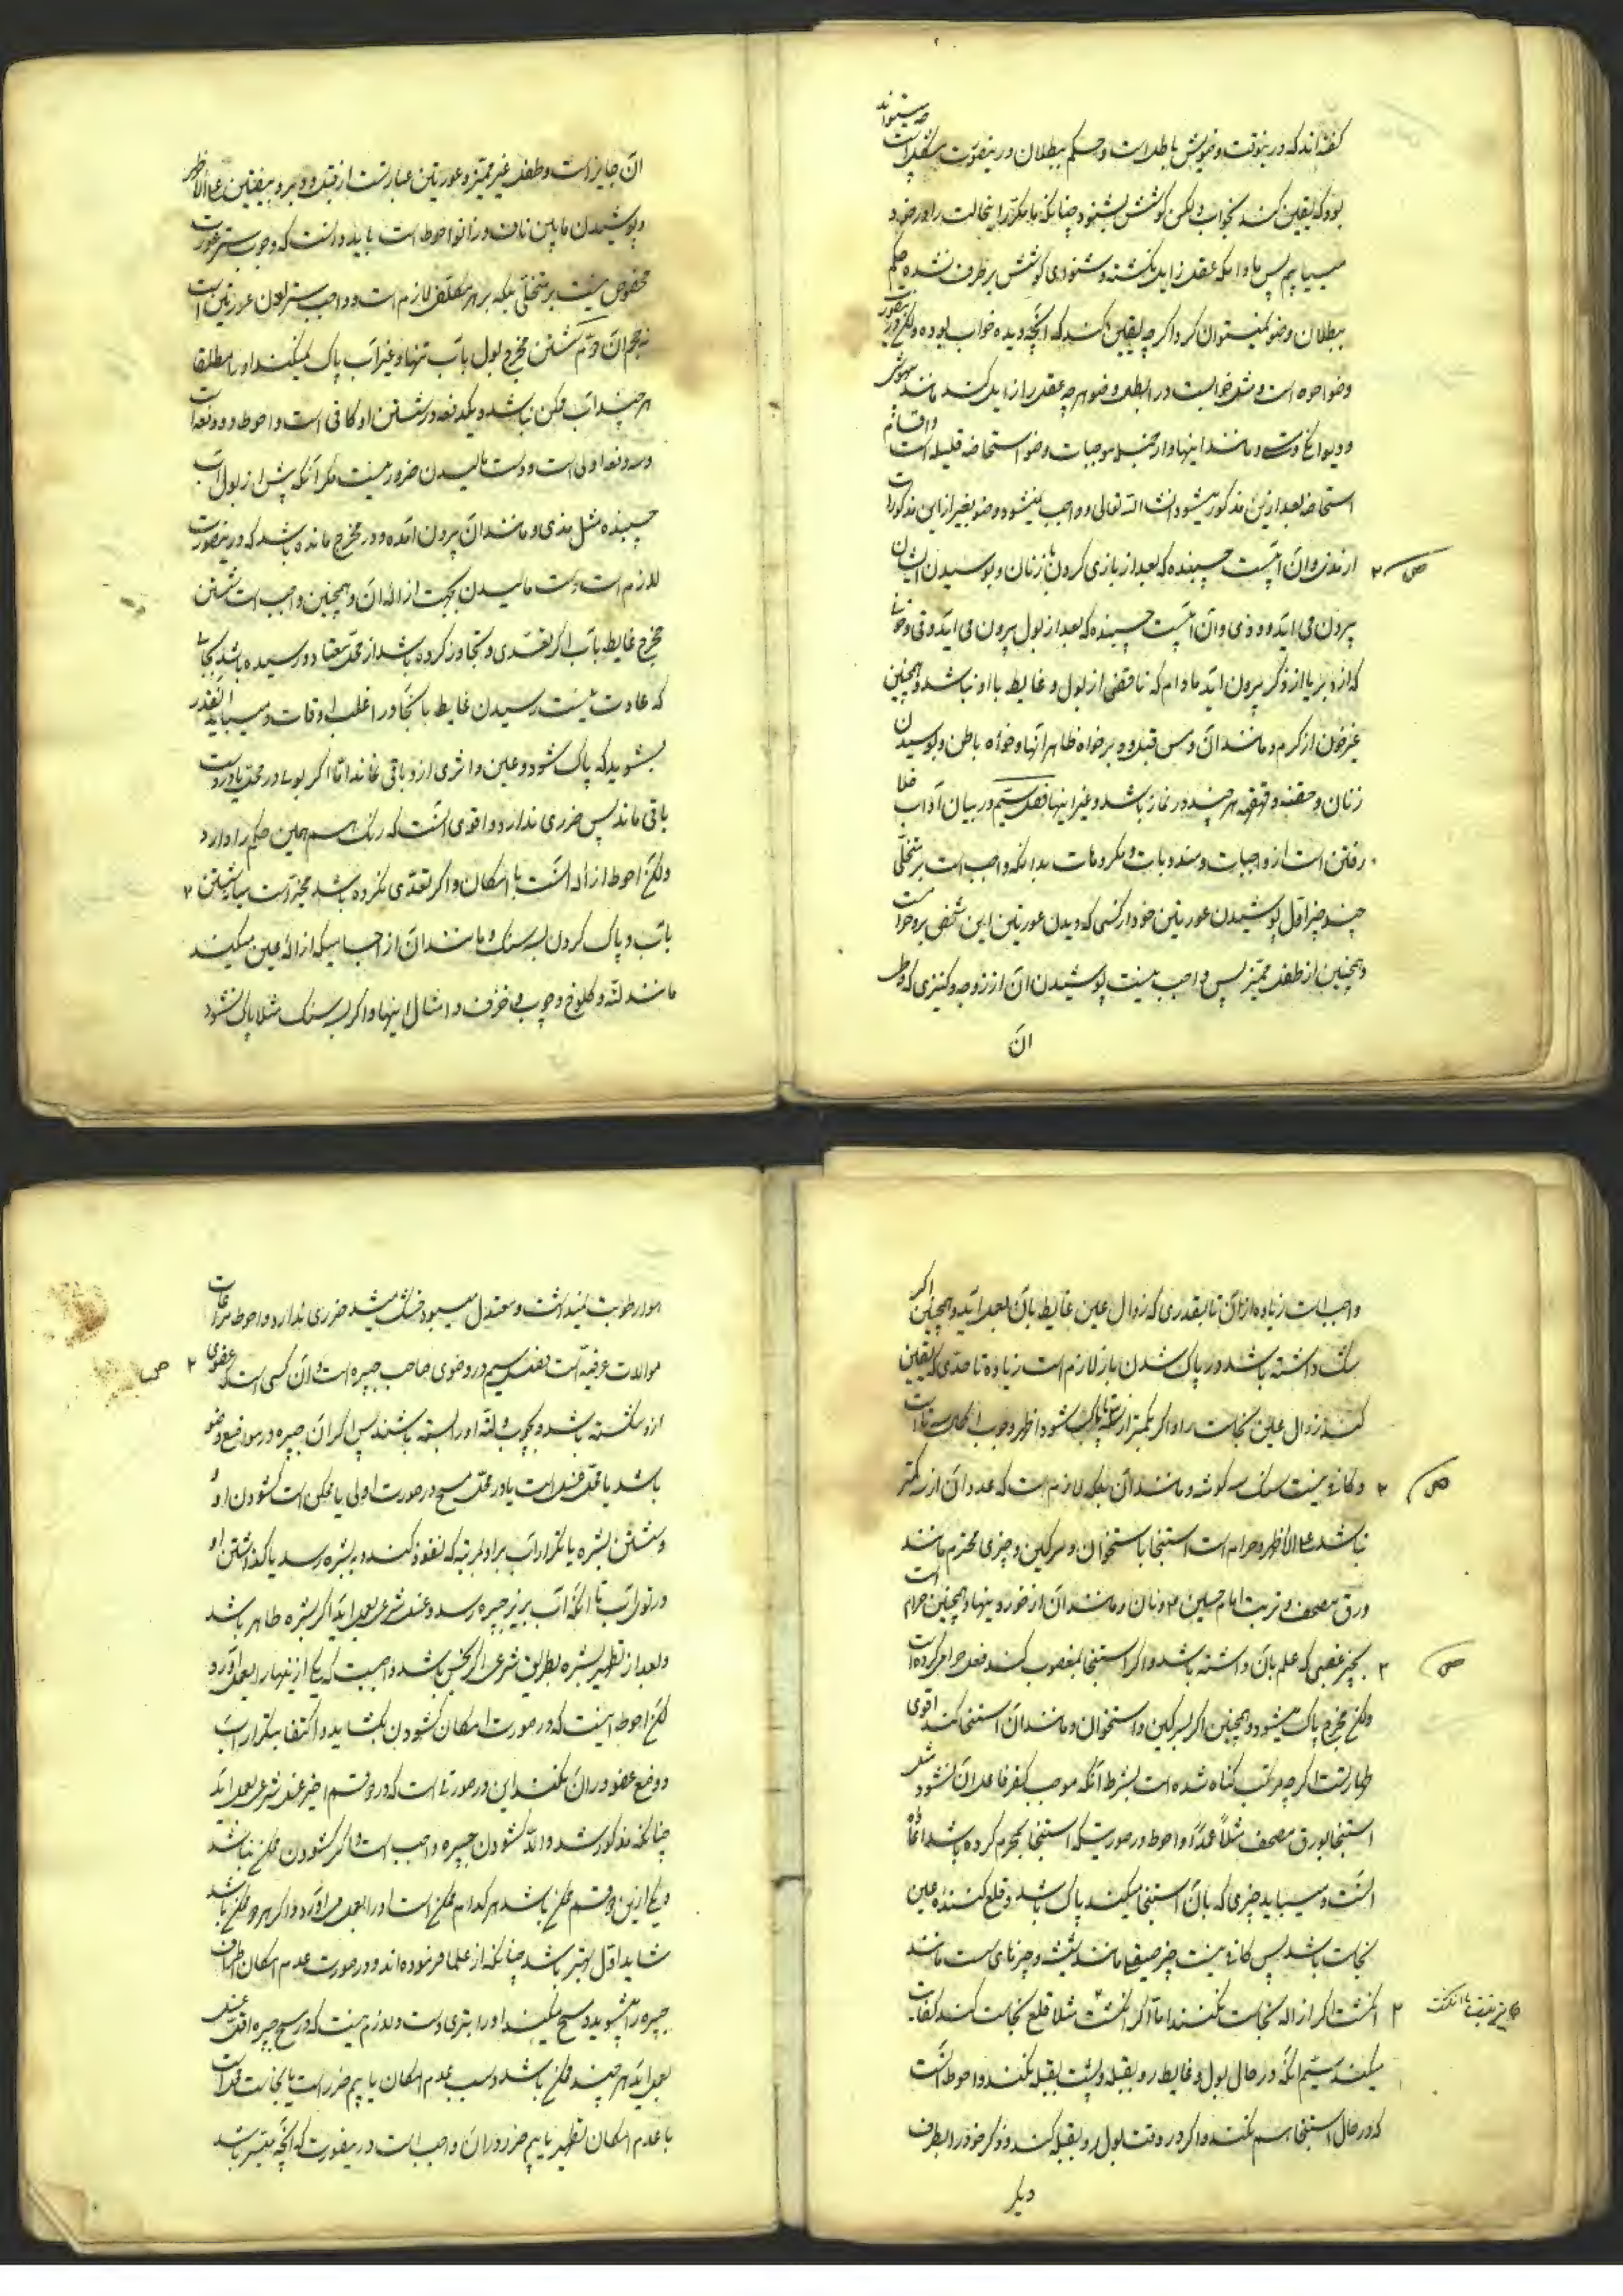 گفته‌اند که درینوقت وضویش باطلست و حکم ببطلان درینصورت مشکلست
بود که یقین کند بخواب و لیکن گوشش بشنود چنانکه ما مکرر اینحالت را در خود
مییابیم پس مادامکه عقل زایل نگشته و شنوای گوشش برطرف نشده حکم
ببطلان وضو نمیتوان کرد اگرچه یقین کند که آنچه دیده خواب بوده ولیکن درینصورت
وضو احوط است و مثل خوابست در ابطال وضو هرچه عقل را زایل کند مانند بیهوشی
و دیوانگی و مستی و مانند اینها و از جمله موجبات وضو استحاضه قلیله است و اقسام
استحاضه بعد ازین مذکور میشود انشاء الله تعالی و واجب نمیشود وضو بغیر از این مذکورات
از مذی و آن آبیست چسبنده که بعد از بازی کردن با زنان و بوسیدن ایشان
بیرون می‌آید و وذی و آن آبیست چسبنده که بعد از بول بیرون می‌آید و قی و خونی
که از دبر یا از ذکر بیرون آید مادام که ناقضی از بول و غایط با او نباشد و همچنین
غیر خون از کرم و مانند آن و مس قبل و دبر خواه ظاهر آنها و خواه باطن و بوسیدن
زنان و حقنه و قهقهه هرچند در نماز باشد و غیر اینها فصل سیم در بیان آداب خلا
رفتن است از واجبات و مندوبات و مکروهات بدانکه واجب است بر متخلی
چند چیز اول پوشیدن عورتین خود از کسی که دیدن عورتین این شخص بر او حرامست
و همچنین از طفل ممیز پس واجب نیست پوشیدن آن از زوجه و کنیزی که وطی
آن
آن جایز است و طفل غیر ممیز و عورتین عبارتست از قبل و دبر و بیضتین علی الاظهر
و پوشیدن مابین ناف و زانو احوط است باید دانست که وجوب ستر عورت
مخصوص نیست بر متخلی بلکه بر هر مکلف لازم است و واجب ستر لون عورتین است
نه حجم آن دوم شستن مخرج بول بآب تنها و غیر آب پاک نمیکند او را مطلقا
هرچند آب ممکن نباشد و یکدفعه در شستن او کافی است و احوط دو دفعه است
و سه دفعه اولی است و دست مالیدن ضرور نیست مگر آنکه پیش از بول آب
چسبنده مثل مذی و مانند آن بیرون آمده و در مخرج مانده باشد که درینصورت
لازم است دست مالیدن بجهت ازاله آن و همچنین واجب است شستن
مخرج غایط بآب اگر تعدی و تجاوز کرده باشد از محل معتاد و رسیده باشد بجائی
که عادت نیست رسیدن غایط بآنجا در اغلب اوقات و میباید آنقدر
بشوید که پاک شود و عین و اثری از و باقی نماند اما اگر بو در محل یا در دست
باقی ماند پس ضرری ندارد و اقوی آنست که رنگ هم همین حکم را دارد
ولیکن احوط ازاله آنست با امکان و اگر تعدی نکرده باشد مخیر است میان شستن
بآب و پاک کردن بسنگ و مانند آن از اجسامیکه ازاله عین میکند
مانند لته و کلوخ و چوب و خزف و امثال اینها و اگر بسه سنگ مثلا پاک نشود
واجب است زیاده از آن تا بقدری که زوال عین غایط بآن بعمل آید و همچنین اگر
شک داشته باشد در پاک شدن باز لازم است زیاده تا حدی که یقین
کند زوال عین نجاست را و اگر بکمتر از سه پاک شود اظهر وجوب اکمال سه تا است
و کافی نیست سنگ سه گوشه و مانند آن بلکه لازم است که عدد آن از سه کمتر
نباشد علی الاظهر و حرام است استنجا باستخوان و سرگین و چیزی محترم مانند
ورق مصحف و تربت امام حسین و نان و مانند آن از خوردنیها و همچنین حرام است
بچیز غصبی که علم بآن داشته باشد و اگر استنجا بمغصوب کند فعل حرام کرده است
ولیکن مخرج پاک میشود و همچنین اگر بسرگین و استخوان و مانند آن استنجا کند اقوی
طهارتست اگرچه مرتکب گناه شده است بشرط آنکه موجب کفر فاعل آن نشود مثل
استنجا بورق مصحف مثلا عمدا و احوط درصورتیکه استنجا بمحرم کرده باشد اعاده
آنست و میباید چیزی که بآن استنجا میکند پاک باشد و قلع کننده عین
نجاست باشد پس کافی نیست چیز صیقلی مانند شیشه و چیزهای سست مانند
انگشت اگر ازاله نجاست نکند اما اگر انگشت مثلا قلع نجاست کند کفایت
میکند سیم آنکه در حال بول و غایط رو بقبله و پشت بقبله نکند و احوط آنست
که در حال استنجا هم نکند و اگر در وقت بول رو بقبله کند و ذکر خود را بطرف
دیگر
هوا رطوبت نمیداشت و معتدل میبود خشک میشد ضرری ندارد و احوط مراعات
موالات عرفیه است فصل سیم در وضوی صاحب جبیره است و آن کسی است که عضوی
ازو شکسته باشد و بچوب و لته او را بسته باشند پس اگر آن جبیره در مواضع وضو
باشد یا محل غسل است یا در محل مسح در صورت اولی یا ممکن است گشودن او
و شستن بشره یا تکرار آب بر او بمرتبه که نفوذ کند و به بشره رسد یا گذاشتن او
در توی آب تا آنکه آب بزیر جبیره رسد و غسل شرعی بعمل آید اگر بشره طاهر باشد
و بعد از تطهیر بشره بطریق شرعی اگر نجس باشد واجبست که یکی از اینها را بعمل آورد
لیکن احوط اینست که در صورت امکان گشودن بگشاید و اکتفا بتکرار آب
و وضع عضو در آن نکند این در صورتی است که در دو قسم اخیر غسل شرعی بعمل آید
چنانکه مذکور شد و الا گشودن جبیره واجب است و اگر گشودن ممکن نباشد
و یکی ازین دو قسم ممکن باشد هرکدام ممکن است او را بعمل می‌آورد و اگر هر دو ممکن باشد
شاید اول بهتر باشد چنانکه از علما فرموده‌اند و در صورت عدم امکان اطراف
جبیره را میشوید و مسح میکند او را بتری دست و لازم نیست که در مسح جبیره اقل غسل
بعمل آید هرچند ممکن باشد و سبب عدم امکان یا بیم ضرر است یا نجاست محل است
با عدم امکان تطهیر یا بیم ضرر در آن و واجب است درینصورت که آنچه میسر باشد